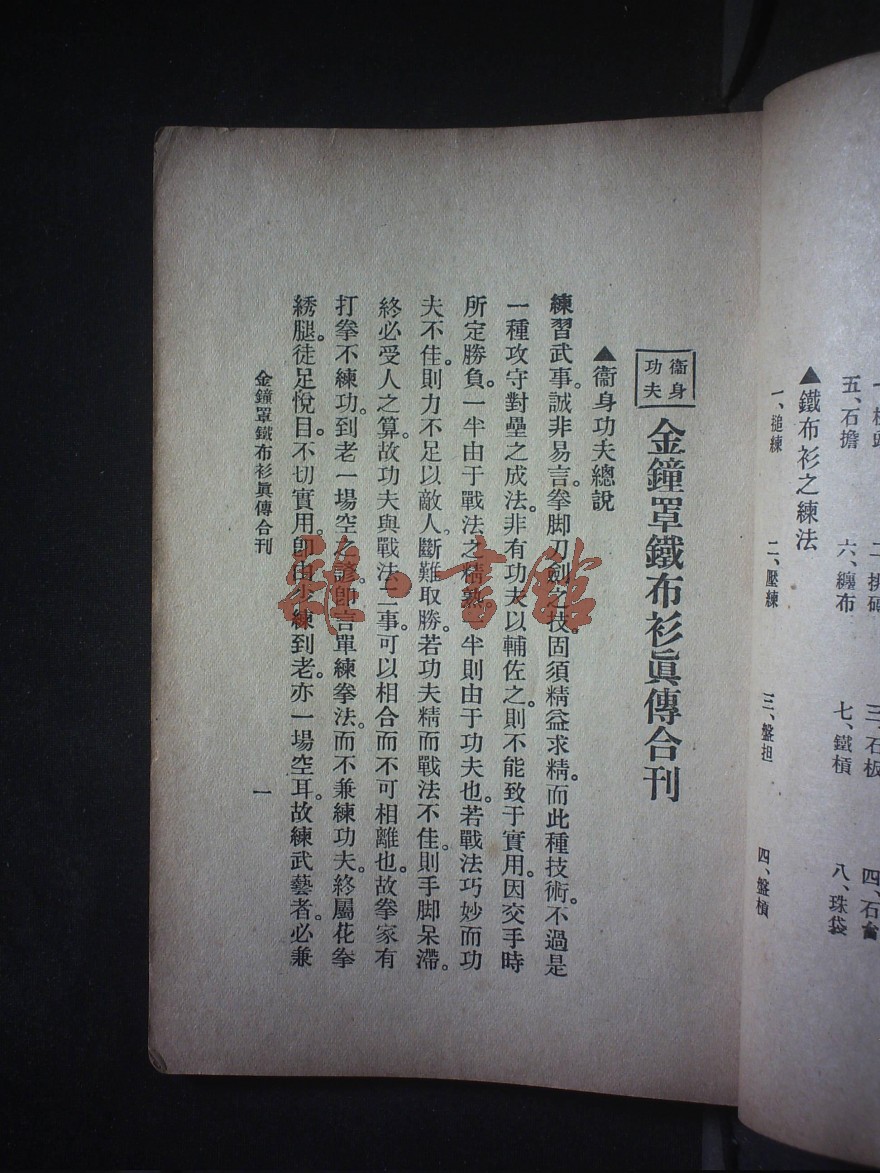 五、石擔
六、纏布
七、鐵槓
八、珠袋
▲鐵布衫之練法
一、搥練
二、壓練
三、盤担
四、盤槓
衞身功夫
金鐘罩鐵布衫眞傳合刊
▲衞身功夫總說
練習武事。誠非易言。拳脚刀劍之技。固須精益求精。而此種技術。不過是
一種攻守對壘之成法。非有功夫以輔佐之。則不能致于實用。因交手時
所定勝負。一半由于戰法之精熟。一半則由于功夫也。若戰法巧妙而功
夫不佳。則力不足以敵人。斷難取勝。若功夫精而戰法不佳。則手脚呆滯。
終必受人之算。故功夫與戰法二事。可以相合而不可相離也。故拳家有
打拳不練功。到老一場空之諺。卽言單練拳法。而不兼練功夫。終屬花拳
綉腿。徒足悅目。不切實用。卽由少練到老。亦一場空耳。故練武藝者。必兼
金鐘罩鐵布衫眞傳合刊
一
雜·書館